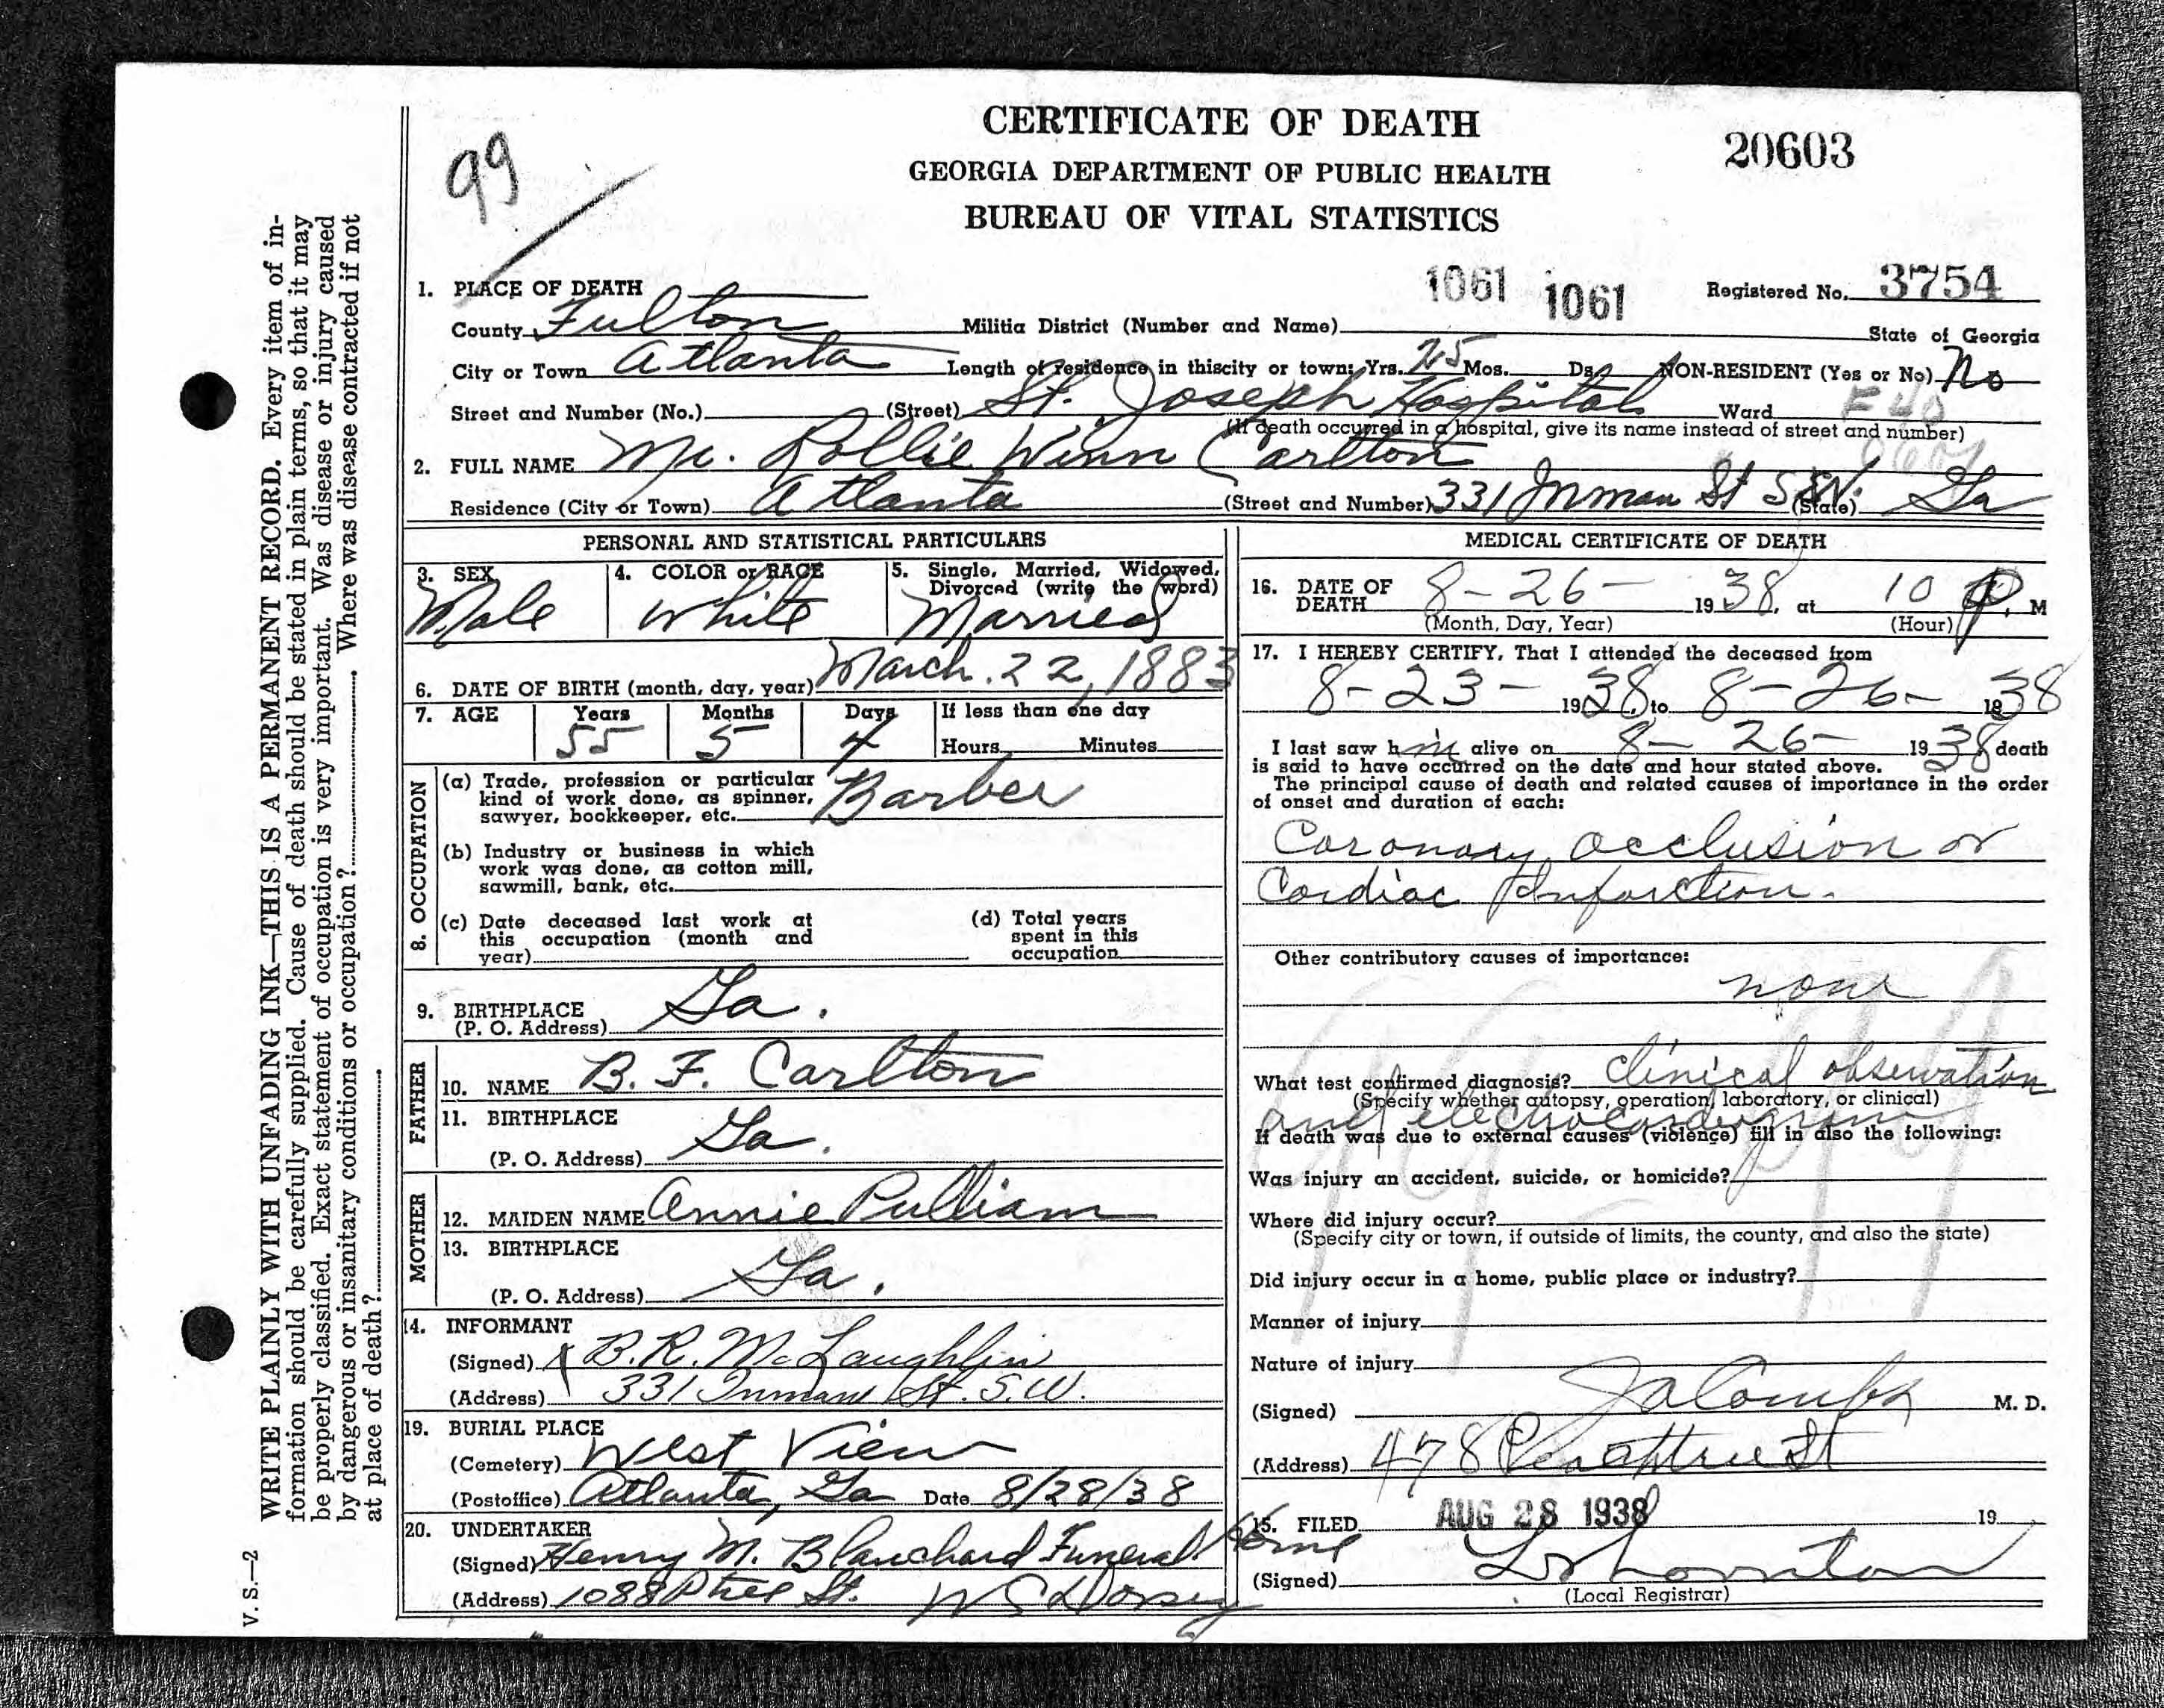 CERTIFICATE OF DEATH
20603
99
GEORGIA DEPARTMENT OF PUBLIC HEALTH
BUREAU OF VITAL STATISTICS
1061 1061
Registered No. 3754
1. PLACE OF DEATH
County Fulton Militia District (Number and Name) State of Georgia
City or Town Atlanta Length of residence in this city or town: Yrs. 25 Mos. Ds. NON-RESIDENT (Yes or No) No
Street and Number (No.) (Street) St. Joseph Hospital Ward
(If death occurred in a hospital, give its name instead of street and number)
2. FULL NAME Mr. Rollie Winn Carlton
Residence (City or Town) Atlanta (Street and Number) 331 Inman St S.W. (State) Ga
PERSONAL AND STATISTICAL PARTICULARS
3. SEX Male
4. COLOR or RACE White
5. Single, Married, Widowed, Divorced (write the word) Married
6. DATE OF BIRTH (month, day, year) March. 22, 1883
7. AGE Years 55 Months 5 Days 4 If less than one day
Hours Minutes
8. OCCUPATION
(a) Trade, profession or particular
kind of work done, as spinner,
sawyer, bookkeeper, etc. Barber
(b) Industry or business in which
work was done, as cotton mill,
sawmill, bank, etc.
(c) Date deceased last work at
this occupation (month and
year)
(d) Total years
spent in this
occupation
9. BIRTHPLACE
(P. O. Address) Ga.
FATHER
10. NAME B. F. Carlton
11. BIRTHPLACE
(P. O. Address) Ga.
MOTHER
12. MAIDEN NAME Annie Pulliam
13. BIRTHPLACE
(P. O. Address) Ga.
14. INFORMANT
(Signed) B. R. McLaughlin
(Address) 331 Inman St. S.W.
19. BURIAL PLACE
(Cemetery) West View
(Postoffice) Atlanta, Ga Date 8/28/38
20. UNDERTAKER
(Signed) Henry M. Blanchard Funeral Home
(Address) 1088 Ptree St. W S Dorsey
MEDICAL CERTIFICATE OF DEATH
16. DATE OF
DEATH 8-26- 1938, at 10 P. M
(Month, Day, Year) (Hour)
17. I HEREBY CERTIFY, That I attended the deceased from
8-23- 1938, to 8-26- 1938
I last saw him alive on 8-26- 1938, death
is said to have occurred on the date and hour stated above.
The principal cause of death and related causes of importance in the order
of onset and duration of each:
Coronary occlusion or
Cardiac Infarction.
Other contributory causes of importance:
none
What test confirmed diagnosis? Clinical observation
(Specify whether autopsy, operation, laboratory, or clinical)
and electrocardiogram
If death was due to external causes (violence) fill in also the following:
Was injury an accident, suicide, or homicide?
Where did injury occur?
(Specify city or town, if outside of limits, the county, and also the state)
Did injury occur in a home, public place or industry?
Manner of injury
Nature of injury
(Signed) M. D.
(Address) 478 Peachtree St
15. FILED AUG 28 1938 19
(Signed)
(Local Registrar)
WRITE PLAINLY WITH UNFADING INK—THIS IS A PERMANENT RECORD. Every item of in-
formation should be carefully supplied. Cause of death should be stated in plain terms, so that it may
be properly classified. Exact statement of occupation is very important. Was disease or injury caused
by dangerous or insanitary conditions or occupation? Where was disease contracted if not
at place of death?
V. S.—2